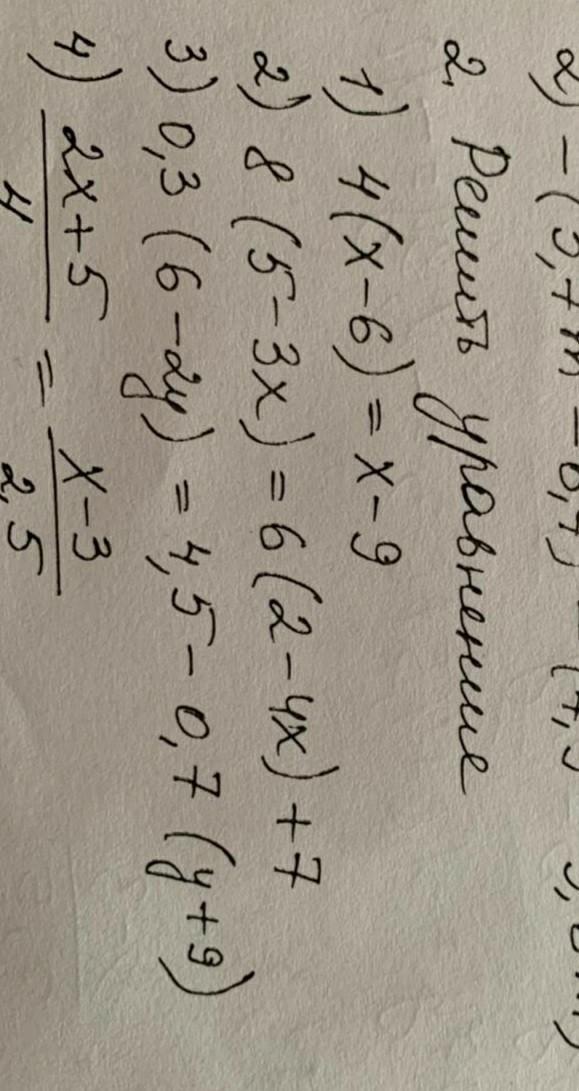 2) -(
2. Решить уравнение
1) 4(x-6) = x-9
2) 8 (5-3x) = 6(2-4x)+7
3) 0,3 (6-2y) = 4,5 - 0,7 (y+9)
4) (2x+5)/4 = (x-3)/2,5